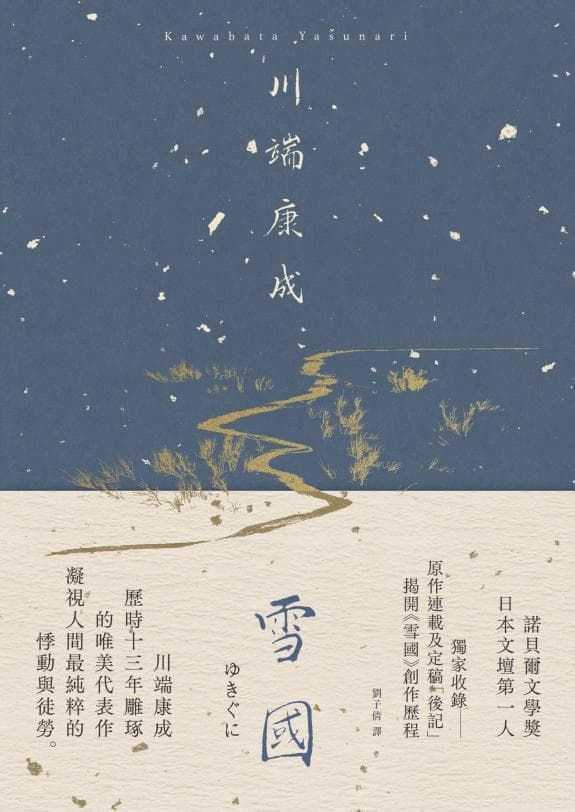 Kawabata Yasunari
川端康成
諾貝爾文學獎
日本文壇第一人
獨家收錄——
原作連載及定稿「後記」
揭開《雪國》創作歷程
劉子倩 譯
雪國
ゆきぐに
川端康成
歷時十三年雕琢
的唯美代表作
凝視人間最純粹的
悸動與徒勞。